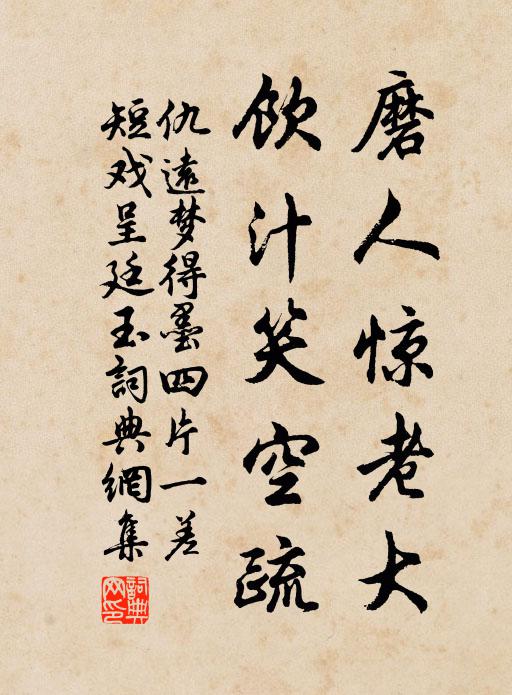 磨人惊老大
饮汁笑空疏
仇遠梦得墨四片一差
短戏呈廷玉詞典網集
詞典网印